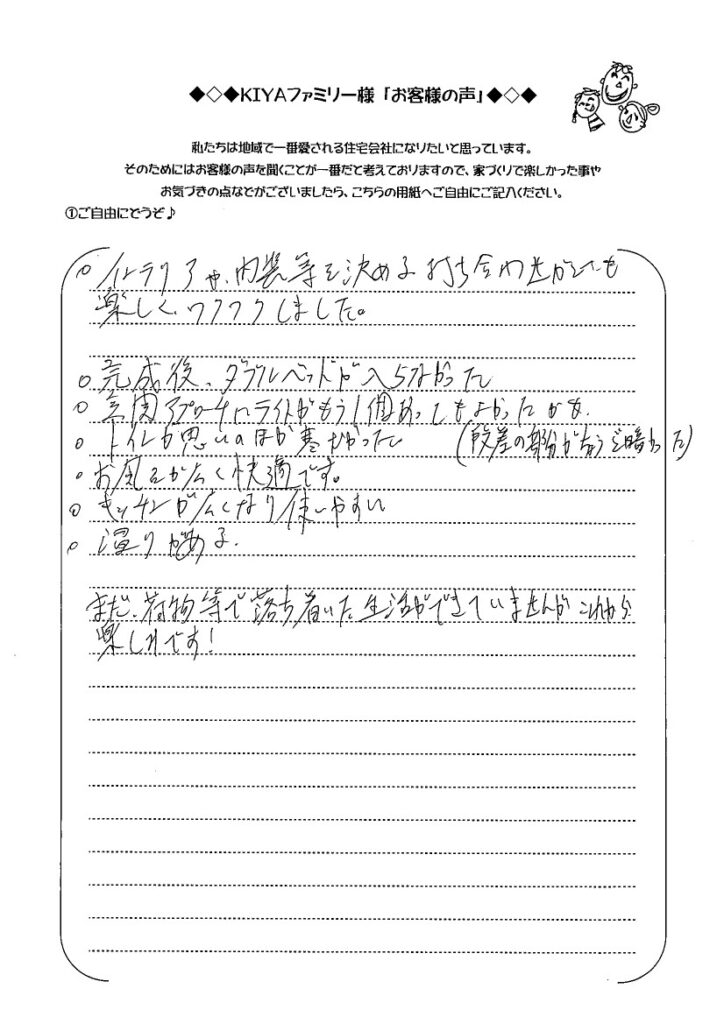 ◆◇◆KIYAファミリー様「お客様の声」◆◇◆
私たちは地域で一番愛される住宅会社になりたいと思っています。
そのためにはお客様の声を聞くことが一番だと考えておりますので、家づくりで楽しかった事や
お気づきの点などがございましたら、こちらの用紙へご自由にご記入ください。
①ご自由にどうぞ♪
○ インテリアや、内装等を決める打ち合わせがとても
楽しく、ワクワクしました。
○ 完成後、ダブルベッドが入らなかった
○ 玄関アプローチにライトがもう1個あってもよかったかも。
○ トイレが思いのほか寒かった (段差の部分が暗かった)
○ お風呂が広く快適です。
○ キッチンが広くなり使いやすい
○ 湿りがある。
まだ、荷物等で落ち着いた生活ができていませんがこれから
楽しみです!